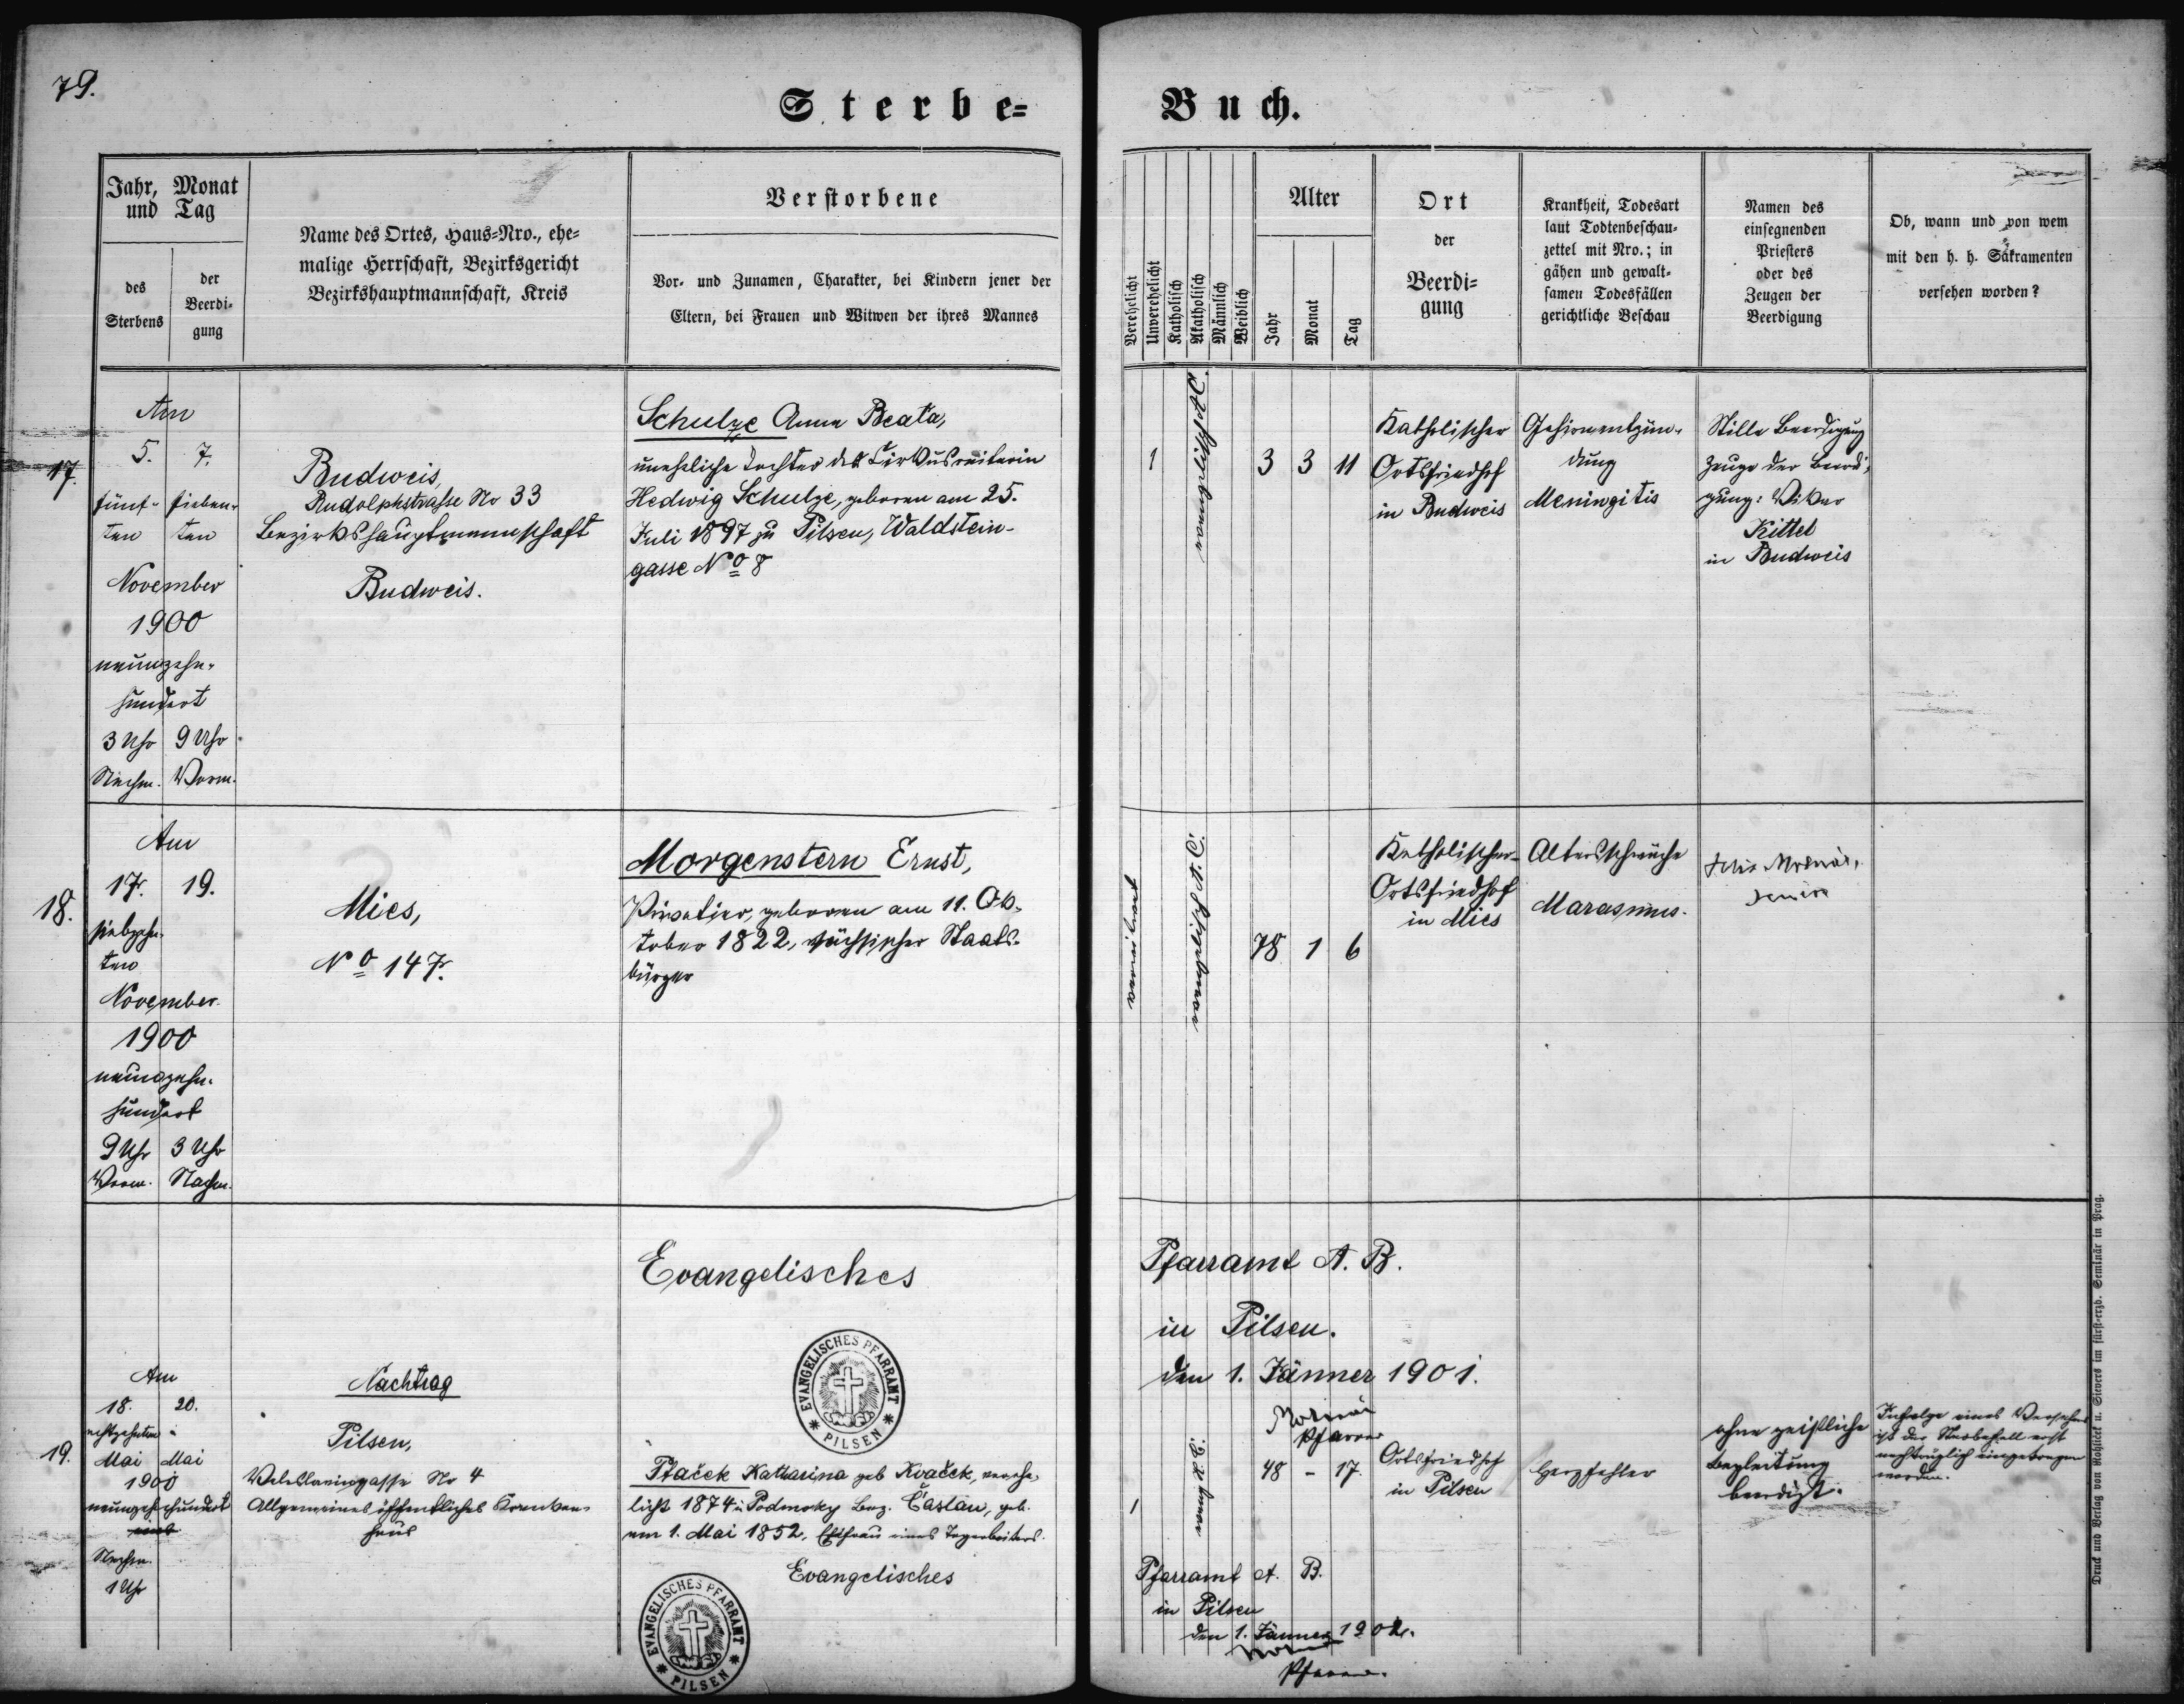 79.
Sterbe=
Buch.
Jahr, Monat
und Tag
des
Sterbens
der
Beerdi-
gung
Name des Ortes, Haus-Nro., ehe-
malige Herrschaft, Bezirksgericht
Bezirkshauptmannschaft, Kreis
Verstorbene
Vor- und Zunamen, Charakter, bei Kindern jener der
Eltern, bei Frauen und Witwen der ihres Mannes
Verehelicht
Unverehelicht
Katholisch
Akatholisch
Männlich
Weiblich
Alter
Jahr
Monat
Tag
Ort
der
Beerdi-
gung
Krankheit, Todesart
laut Todtenbeschau-
zettel mit Nro.; in
gähen und gewalt-
samen Todesfällen
gerichtliche Beschau
Namen des
einsegnenden
Priesters
oder des
Zeugen der
Beerdigung
Ob, wann und von wem
mit den h. h. Sakramenten
versehen worden?
17.
Am
5. 7.
fünf- sieben-
ten ten
November
1900
neunzehn-
hundert
3 Uhr 9 Uhr
Nachm. Vorm.
Budweis,
Rudolphstrasse No 33
Bezirkshauptmannschaft
Budweis.
Schulze Anna Beata,
uneheliche Tochter der Cirkusreiterin
Hedwig Schulze, geboren am 25.
Juli 1897 zu Pilsen, Waldstein-
gasse No 8
1
3 3 11
Katholischer
Ortsfriedhof
in Budweis
Gehirnentzün-
dung
Meningitis
Stille Beerdigung
Zeuge der Beerdi-
gung: Vikar
Kittel
in Budweis
18.
Am
17. 19.
siebzehn-
ten
November
1900
neunzehn-
hundert
9 Uhr 3 Uhr
Vorm. Nachm.
Mies,
No 147.
Morgenstern Ernst,
Privatier, geboren am 11. Ok-
tober 1822, sächsischer Staats-
bürger
78 1 6
Katholischer
Ortsfriedhof
in Mies
Altersschwäche
Marasmus.
Molnár,
Senior
Evangelisches
Pfarramt A. B.
in Pilsen.
den 1. Jänner 1901.
Molnár
Pfarrer
EVANGELISCHES PFARRAMT
PILSEN
19.
Am
18. 20.
achtzehnten
Mai Mai
1900
neunzehnhundert
Nachm.
1 Uhr
Nachtrag
Pilsen,
Veleslavingasse No 4
Allgemeines öffentliches Kranken-
haus
Ptaček Katharina geb Kvaček, verehe-
licht 1874 in Podmoky Bez. Časlau, geb.
am 1. Mai 1852, Ehefrau eines Tagarbeiters.
1
48 - 17
Ortsfriedhof
in Pilsen
Herzfehler
ohne geistliche
Begleitung
beerdigt.
Infolge eines Versehens
ist der Sterbefall erst
nachträglich eingetragen
worden.
Evangelisches
Pfarramt A. B.
in Pilsen
den 1. Jänner
Pfarrer.
EVANGELISCHES PFARRAMT
PILSEN
Druck und Verlag von Rohliček u. Sievers im fürst-erzb. Seminär in Prag.